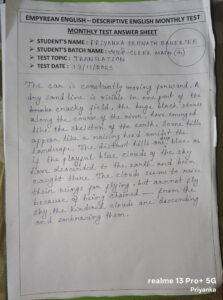 EMPYREAN ENGLISH – DESCRIPTIVE ENGLISH MONTHLY TEST
MONTHLY TEST ANSWER SHEET
➤ STUDENT'S NAME : PRIYANKA DEBNATH BANERJEE
➤ STUDENT'S BATCH NAME : CLERK MAIN
➤ TEST TOPIC : TRANSLATION
➤ TEST DATE :
The car is constantly moving forward. A
dry sand line is visible in one part of the
cracky field, the huge black stones
along the course of the river, have emerged
like the skeleton of the earth. Some hills
appear like a raising head amidst the
landscape. The distant hills are blue, as
if the playful blue clouds of the sky
have descended to the earth and been
caught there. The clouds seem to raise
their beings for flying, but cannot fly
because of being chained — from the
sky, the kindred clouds are descending
and embracing them.
realme 13 Pro+ 5G
Priyanka